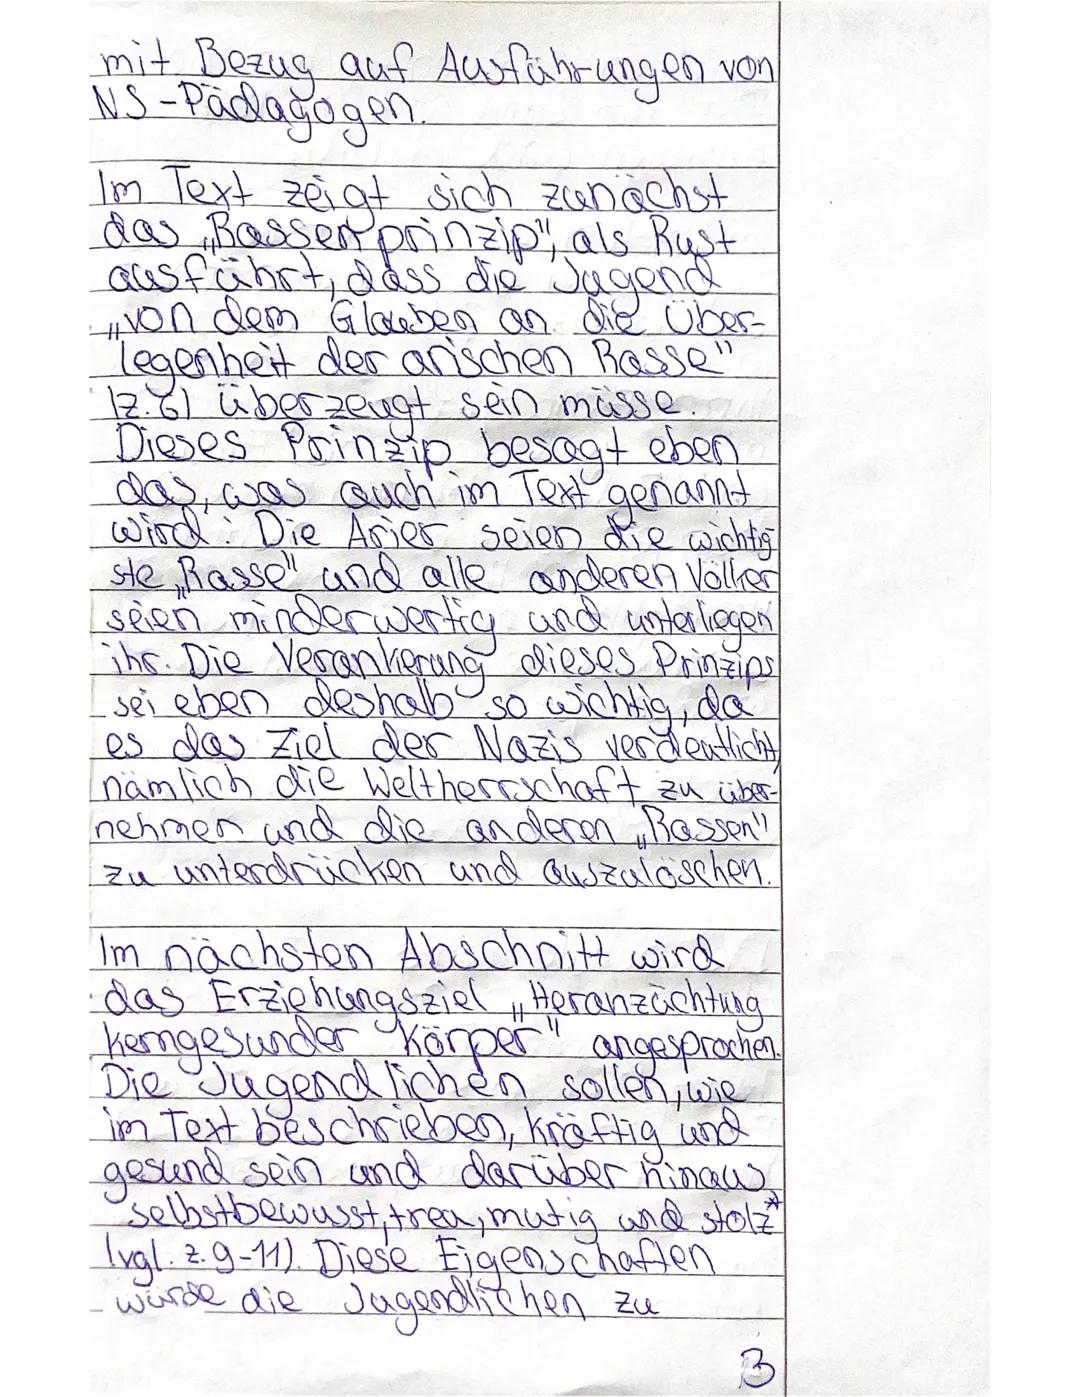 mit Bezug auf Ausführungen von
NS-Pädagogen.
Im Text zeigt sich zunächst
das „Rassenprinzip", als Rust
ausführt, dass die Jugend
„von dem Glauben an die Über-
legenheit der arischen Rasse"
(Z.6) überzeugt sein müsse.
Dieses Prinzip besagt eben
das, was auch im Text genannt
wird: Die Arier seien die wichtig
ste „Rasse" und alle anderen Völker
seien minderwertig und unterliegen
ihr. Die Verankerung dieses Prinzips
sei eben deshalb so wichtig, da
es das Ziel der Nazis verdeutlicht,
nämlich die Weltherrschaft zu über-
nehmen und die anderen „Rassen"
zu unterdrücken und auszulöschen.
Im nächsten Abschnitt wird
das Erziehungsziel „Heranzüchtung
kerngesunder Körper" angesprochen.
Die Jugendlichen sollen, wie
im Text beschrieben, kräftig und
gesund sein und darüber hinaus
selbstbewusst, treu, mutig und stolz*
(vgl. Z.9-11). Diese Eigenschaften
würde die Jugendlichen zu
3